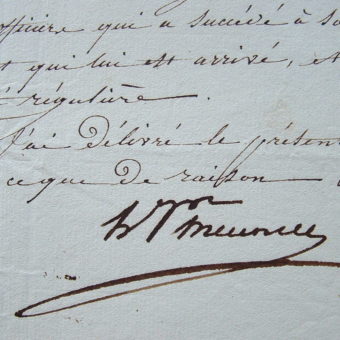 qui a succédé à
qui lui est arrivé, et
régulière.
J'ai délivré le présent
ce que de raison